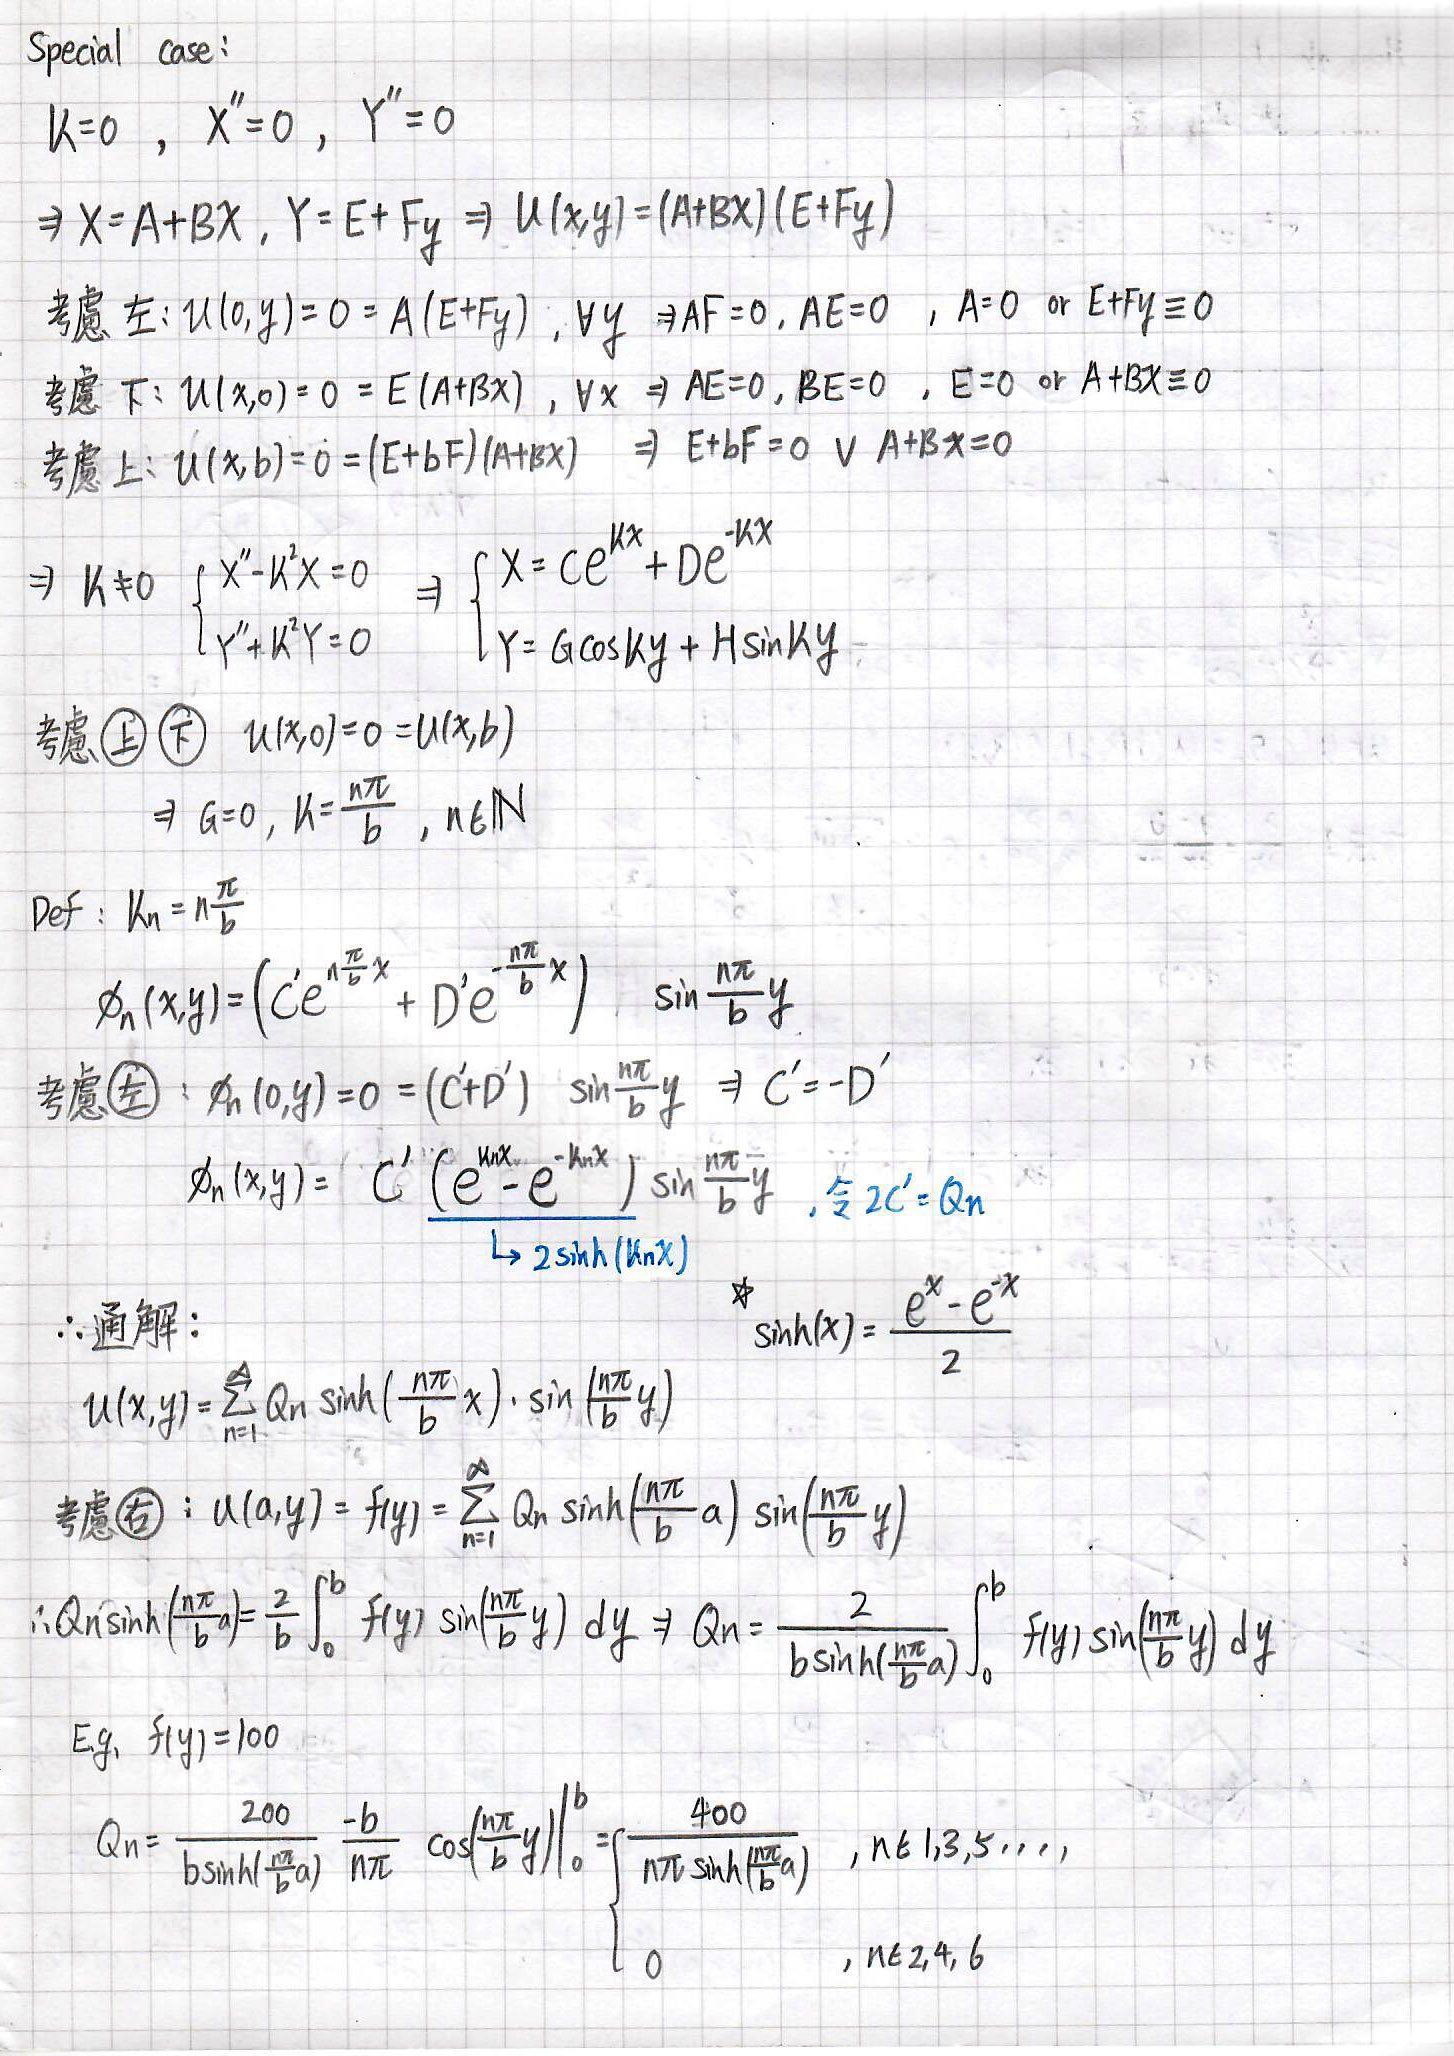 Special case:
K=0 , X''=0 , Y''=0
⇒ X=A+BX , Y=E+Fy ⇒ U(x,y)=(A+BX)(E+Fy)
考慮 左: U(0,y)=0=A(E+Fy) , ∀y ⇒AF=0, AE=0 , A=0 or E+Fy≡0
考慮 下: U(x,0)=0=E(A+BX) , ∀x ⇒ AE=0, BE=0 , E=0 or A+BX≡0
考慮 上: U(x,b)=0=(E+bF)(A+BX) ⇒ E+bF=0 ∨ A+Bx=0
⇒ K≠0 { X''-K²X=0 ⇒ { X=Ce^{KX}+De^{-KX}
Y''+K²Y=0 Y=GcosKy+HsinKy
考慮 上 下 U(x,0)=0=U(x,b)
⇒ G=0, K=\frac{nπ}{b} , n∈ℕ
Def: Kn=n\frac{π}{b}
φn(x,y)=(C'e^{n\frac{π}{b}x}+D'e^{-\frac{nπ}{b}x}) sin\frac{nπ}{b}y
考慮 左 : φn(0,y)=0=(C'+D') sin\frac{nπ}{b}y ⇒ C'=-D'
φn(x,y)= C'(e^{Knx}-e^{-Knx}) sin\frac{nπ}{b}y , 令 2C'=Qn
↳ 2sinh(Knx)
☆ sinh(x)=\frac{e^x-e^{-x}}{2}
∴通解:
U(x,y)=\sum_{n=1}^{∞} Qn sinh(\frac{nπ}{b}x)·sin(\frac{nπ}{b}y)
考慮 右 : U(a,y)=f(y)=\sum_{n=1}^{∞} Qn sinh(\frac{nπ}{b}a) sin(\frac{nπ}{b}y)
∴Qnsinh(\frac{nπ}{b}a)=\frac{2}{b}∫_0^b f(y) sin(\frac{nπ}{b}y) dy ⇒ Qn=\frac{2}{bsinh(\frac{nπ}{b}a)}∫_0^b f(y)sin(\frac{nπ}{b}y) dy
E.g. f(y)=100
Qn=\frac{200}{bsinh(\frac{nπ}{b}a)} \frac{-b}{nπ} cos(\frac{nπ}{b}y)|_0^b = { \frac{400}{nπ sinh(\frac{nπ}{b}a)} , n∈1,3,5....,
0 , n∈2,4,6